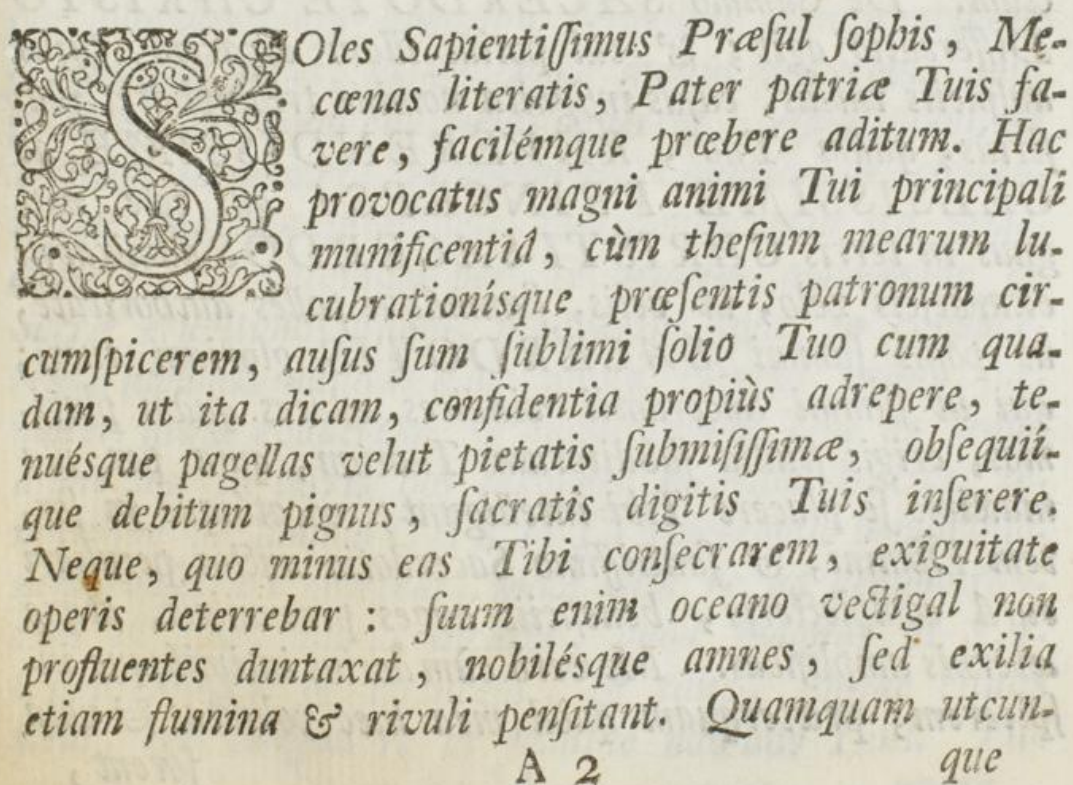 SOles Sapientiſſimus Præſul ſophis, Me-
cœnas literatis, Pater patriæ Tuis fa-
vere, facilémque præbere aditum. Hac
provocatus magni animi Tui principali
munificentiâ, cùm theſium mearum lu-
cubrationíſque præſentis patronum cir-
cumſpicerem, auſus ſum ſublimi ſolio Tuo cum qua-
dam, ut ita dicam, confidentia propiùs adrepere, te-
nuéſque pagellas velut pietatis ſubmiſiſſimæ, obſequií-
que debitum pignus, ſacratis digitis Tuis inſerere.
Neque, quo minus eas Tibi conſecrarem, exiguitate
operis deterrebar : ſuum enim oceano vectigal non
profluentes duntaxat, nobiléſque amnes, ſed exilia
etiam flumina & rivuli penſitant. Quamquam utcun-
A 2 que